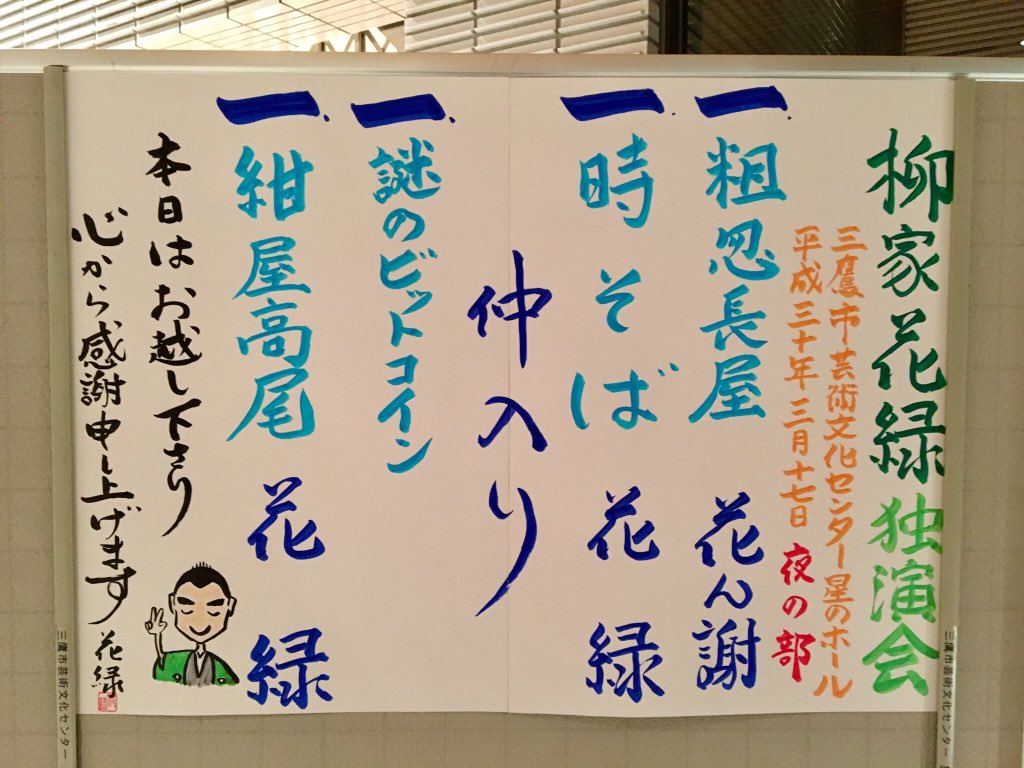 柳家花緑独演会
三鷹市芸術文化センター星のホール
平成三十年三月十七日 夜の部
一、粗忽長屋 花ん謝
一、時そば 花緑
仲入り
一、謎のビットコイン
一、紺屋高尾 花緑
本日はお越し下さり
心から感謝申し上げます
花緑
三鷹市芸術文化センター
三鷹市芸術文化センター